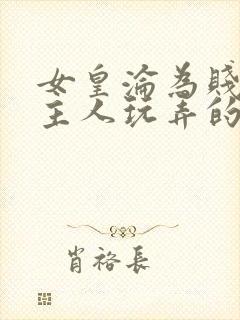 女皇淪為賤
主人玩弄的
肖裕長